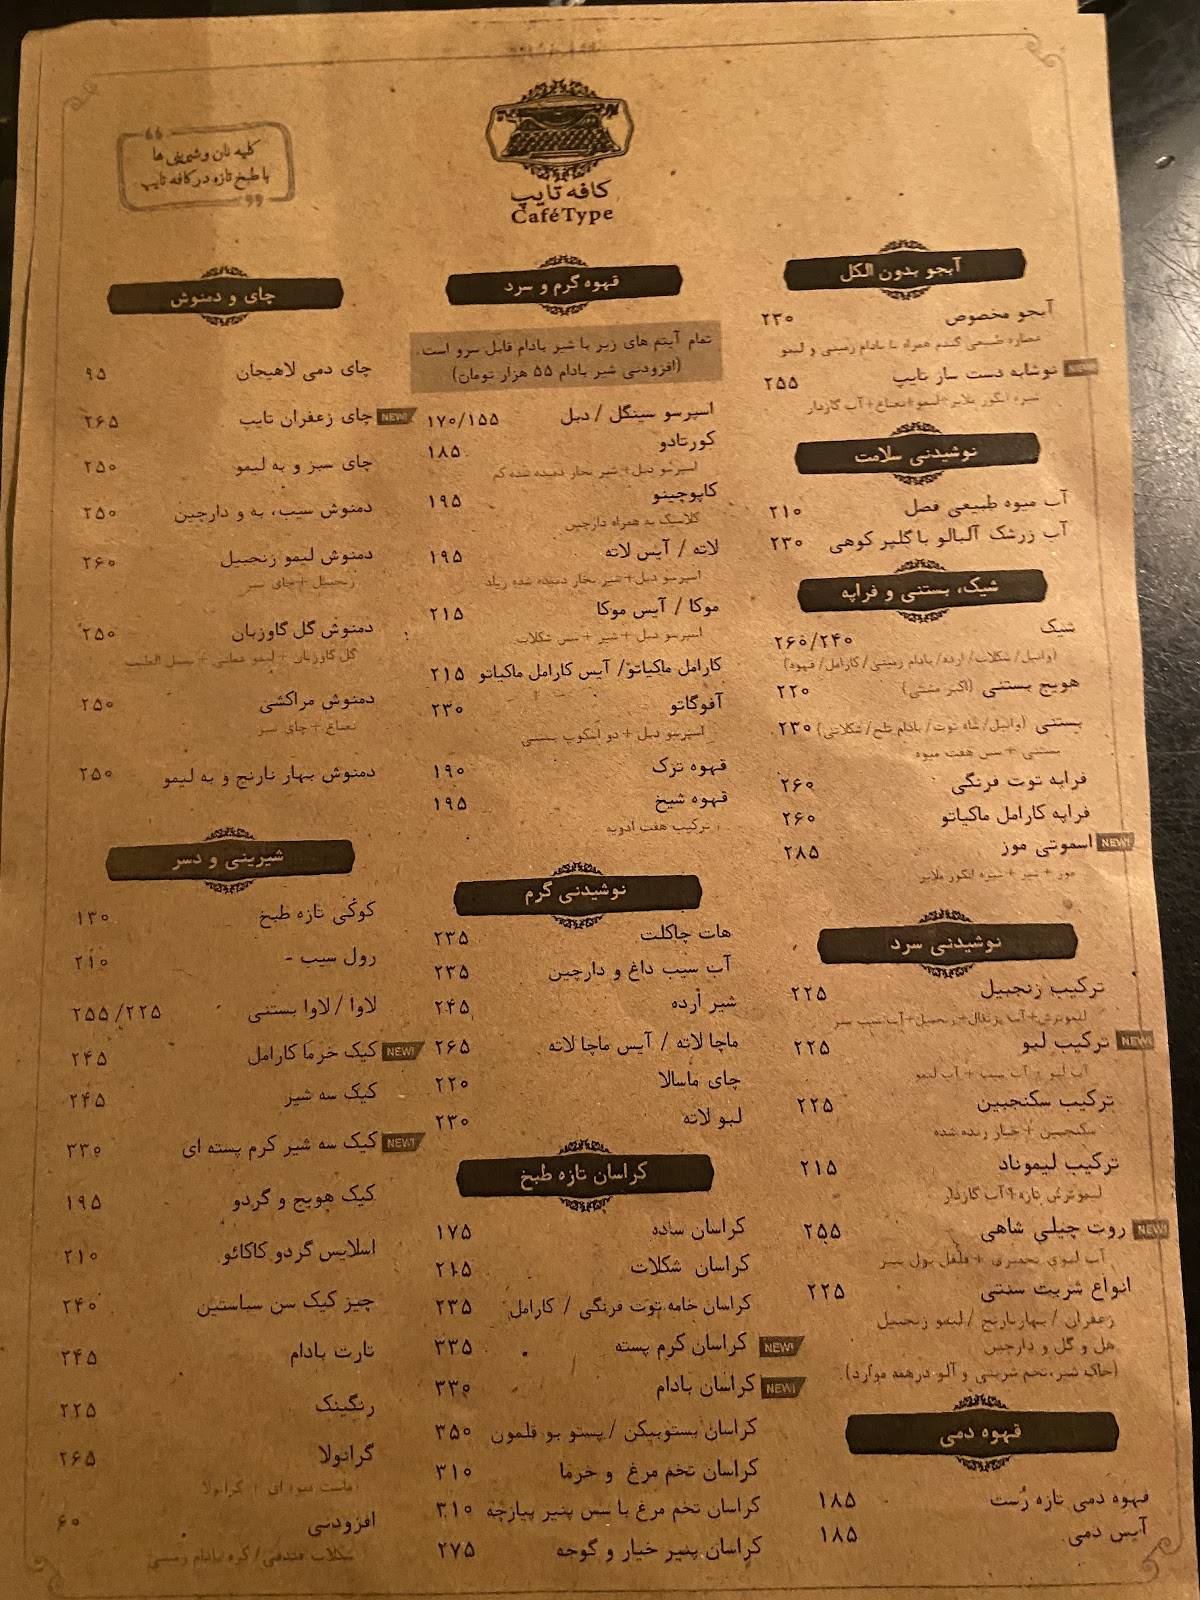 کلیه نان و شیرینی ها
با طبخ تازه در کافه تایپ
کافه تایپ
CaféType
آبجو بدون الکل
آبجو مخصوص ۲۳۰
عصاره طبیعی گندم همراه با بادام زمینی و لیمو
NEW! نوشابه دست ساز تایپ ۲۵۵
شیره انگور ملایر+لیمو+نعناع+آب گازدار
نوشیدنی سلامت
آب میوه طبیعی فصل ۲۱۰
آب زرشک آلبالو با گلپر کوهی ۲۳۰
شیک، بستنی و فراپه
شیک ۲۶۰/۲۴۰
(وانیل/شکلات/ارده/بادام زمینی/کارامل/قهوه)
هویج بستنی (اکبر مشتی) ۲۲۰
بستنی (وانیل/شاه توت/بادام تلخ/شکلاتی) ۲۳۰
بستنی + سس هفت میوه
فراپه توت فرنگی ۲۶۰
فراپه کارامل ماکیاتو ۲۶۰
NEW! اسموتی موز ۲۸۵
موز + شیر + شیره انگور ملایر
نوشیدنی سرد
ترکیب زنجبیل ۲۲۵
لیموترش+آب پرتقال+زنجبیل+آب سیب سبز
NEW! ترکیب لبو ۲۲۵
آب لبو + آب سیب + آب لیمو
ترکیب سکنجبین ۲۲۵
سکنجبین + خیار رنده شده
ترکیب لیموناد ۲۱۵
لیموترش تازه+آب گازدار
NEW! روت چیلی شاهی ۲۵۵
آب لبوی تخمیری + فلفل پول بیبر
انواع شربت سنتی ۲۲۵
زعفران / بهارنارنج / لیمو زنجبیل
هل و گل و دارچین
(خاک شیر،تخم شربتی و آلو درهمه موارد)
قهوه دمی
قهوه دمی تازه رُست ۱۸۵
آیس دمی ۱۸۵
قهوه گرم و سرد
تمام آیتم های زیر با شیر بادام قابل سرو است.
(افزودنی شیر بادام ۵۵ هزار تومان)
اسپرسو سینگل / دبل ۱۷۰/۱۵۵
کورتادو ۱۸۵
اسپرسو دبل+ شیر بخار دمیده شده کم
کاپوچینو ۱۹۵
کلاسیک به همراه دارچین
لاته / آیس لاته ۱۹۵
اسپرسو دبل+شیر بخار دمیده شده زیاد
موکا / آیس موکا ۲۱۵
اسپرسو دبل + شیر + سس شکلات
کارامل ماکیاتو/ آیس کارامل ماکیاتو ۲۱۵
آفوگاتو ۲۳۰
اسپرسو دبل + دو اسکوپ بستنی
قهوه ترک ۱۹۰
قهوه شیخ ۱۹۵
ترکیب هفت ادویه
نوشیدنی گرم
هات چاکلت ۲۳۵
آب سیب داغ و دارچین ۲۳۵
شیر ارده ۲۴۵
ماچا لاته / آیس ماچا لاته ۲۶۵
چای ماسالا ۲۲۰
لبو لاته ۲۳۰
کراسان تازه طبخ
کراسان ساده ۱۷۵
کراسان شکلات ۲۱۵
کراسان خامه توت فرنگی / کارامل ۲۳۵
NEW! کراسان کرم پسته ۳۳۵
NEW! کراسان بادام ۳۳۰
کراسان پستوبیکن / پستو بو قلمون ۳۵۰
کراسان تخم مرغ و خرما ۳۱۰
کراسان تخم مرغ با سس پنیر پیازچه ۳۱۰
کراسان پنیر خیار و گوجه ۲۷۵
چای و دمنوش
چای دمی لاهیجان ۹۵
NEW! چای زعفران تایپ ۲۶۵
چای سبز و به لیمو ۲۵۰
دمنوش سیب، به و دارچین ۲۵۰
دمنوش لیمو زنجبیل ۲۶۰
زنجبیل + چای سبز
دمنوش گل گاوزبان ۲۵۰
گل گاوزبان + لیمو عمانی + سنبل الطیب
دمنوش مراکشی ۲۵۰
نعناع + چای سبز
دمنوش بهار نارنج و به لیمو ۲۵۰
شیرینی و دسر
کوکی تازه طبخ ۱۳۰
رول سیب - ۲۱۰
لاوا / لاوا بستنی ۲۵۵/۲۲۵
NEW! کیک خرما کارامل ۲۴۵
کیک سه شیر ۲۴۵
NEW! کیک سه شیر کرم پسته ای ۳۳۰
کیک هویج و گردو ۱۹۵
اسلایس گردو کاکائو ۲۱۰
چیز کیک سن سباستین ۲۴۰
تارت بادام ۲۴۵
رنگینک ۲۲۵
گرانولا ۲۶۵
ماست میوه ای + گرانولا
افزودنی ۶۰
شکلات فندقی/ کره بادام زمینی